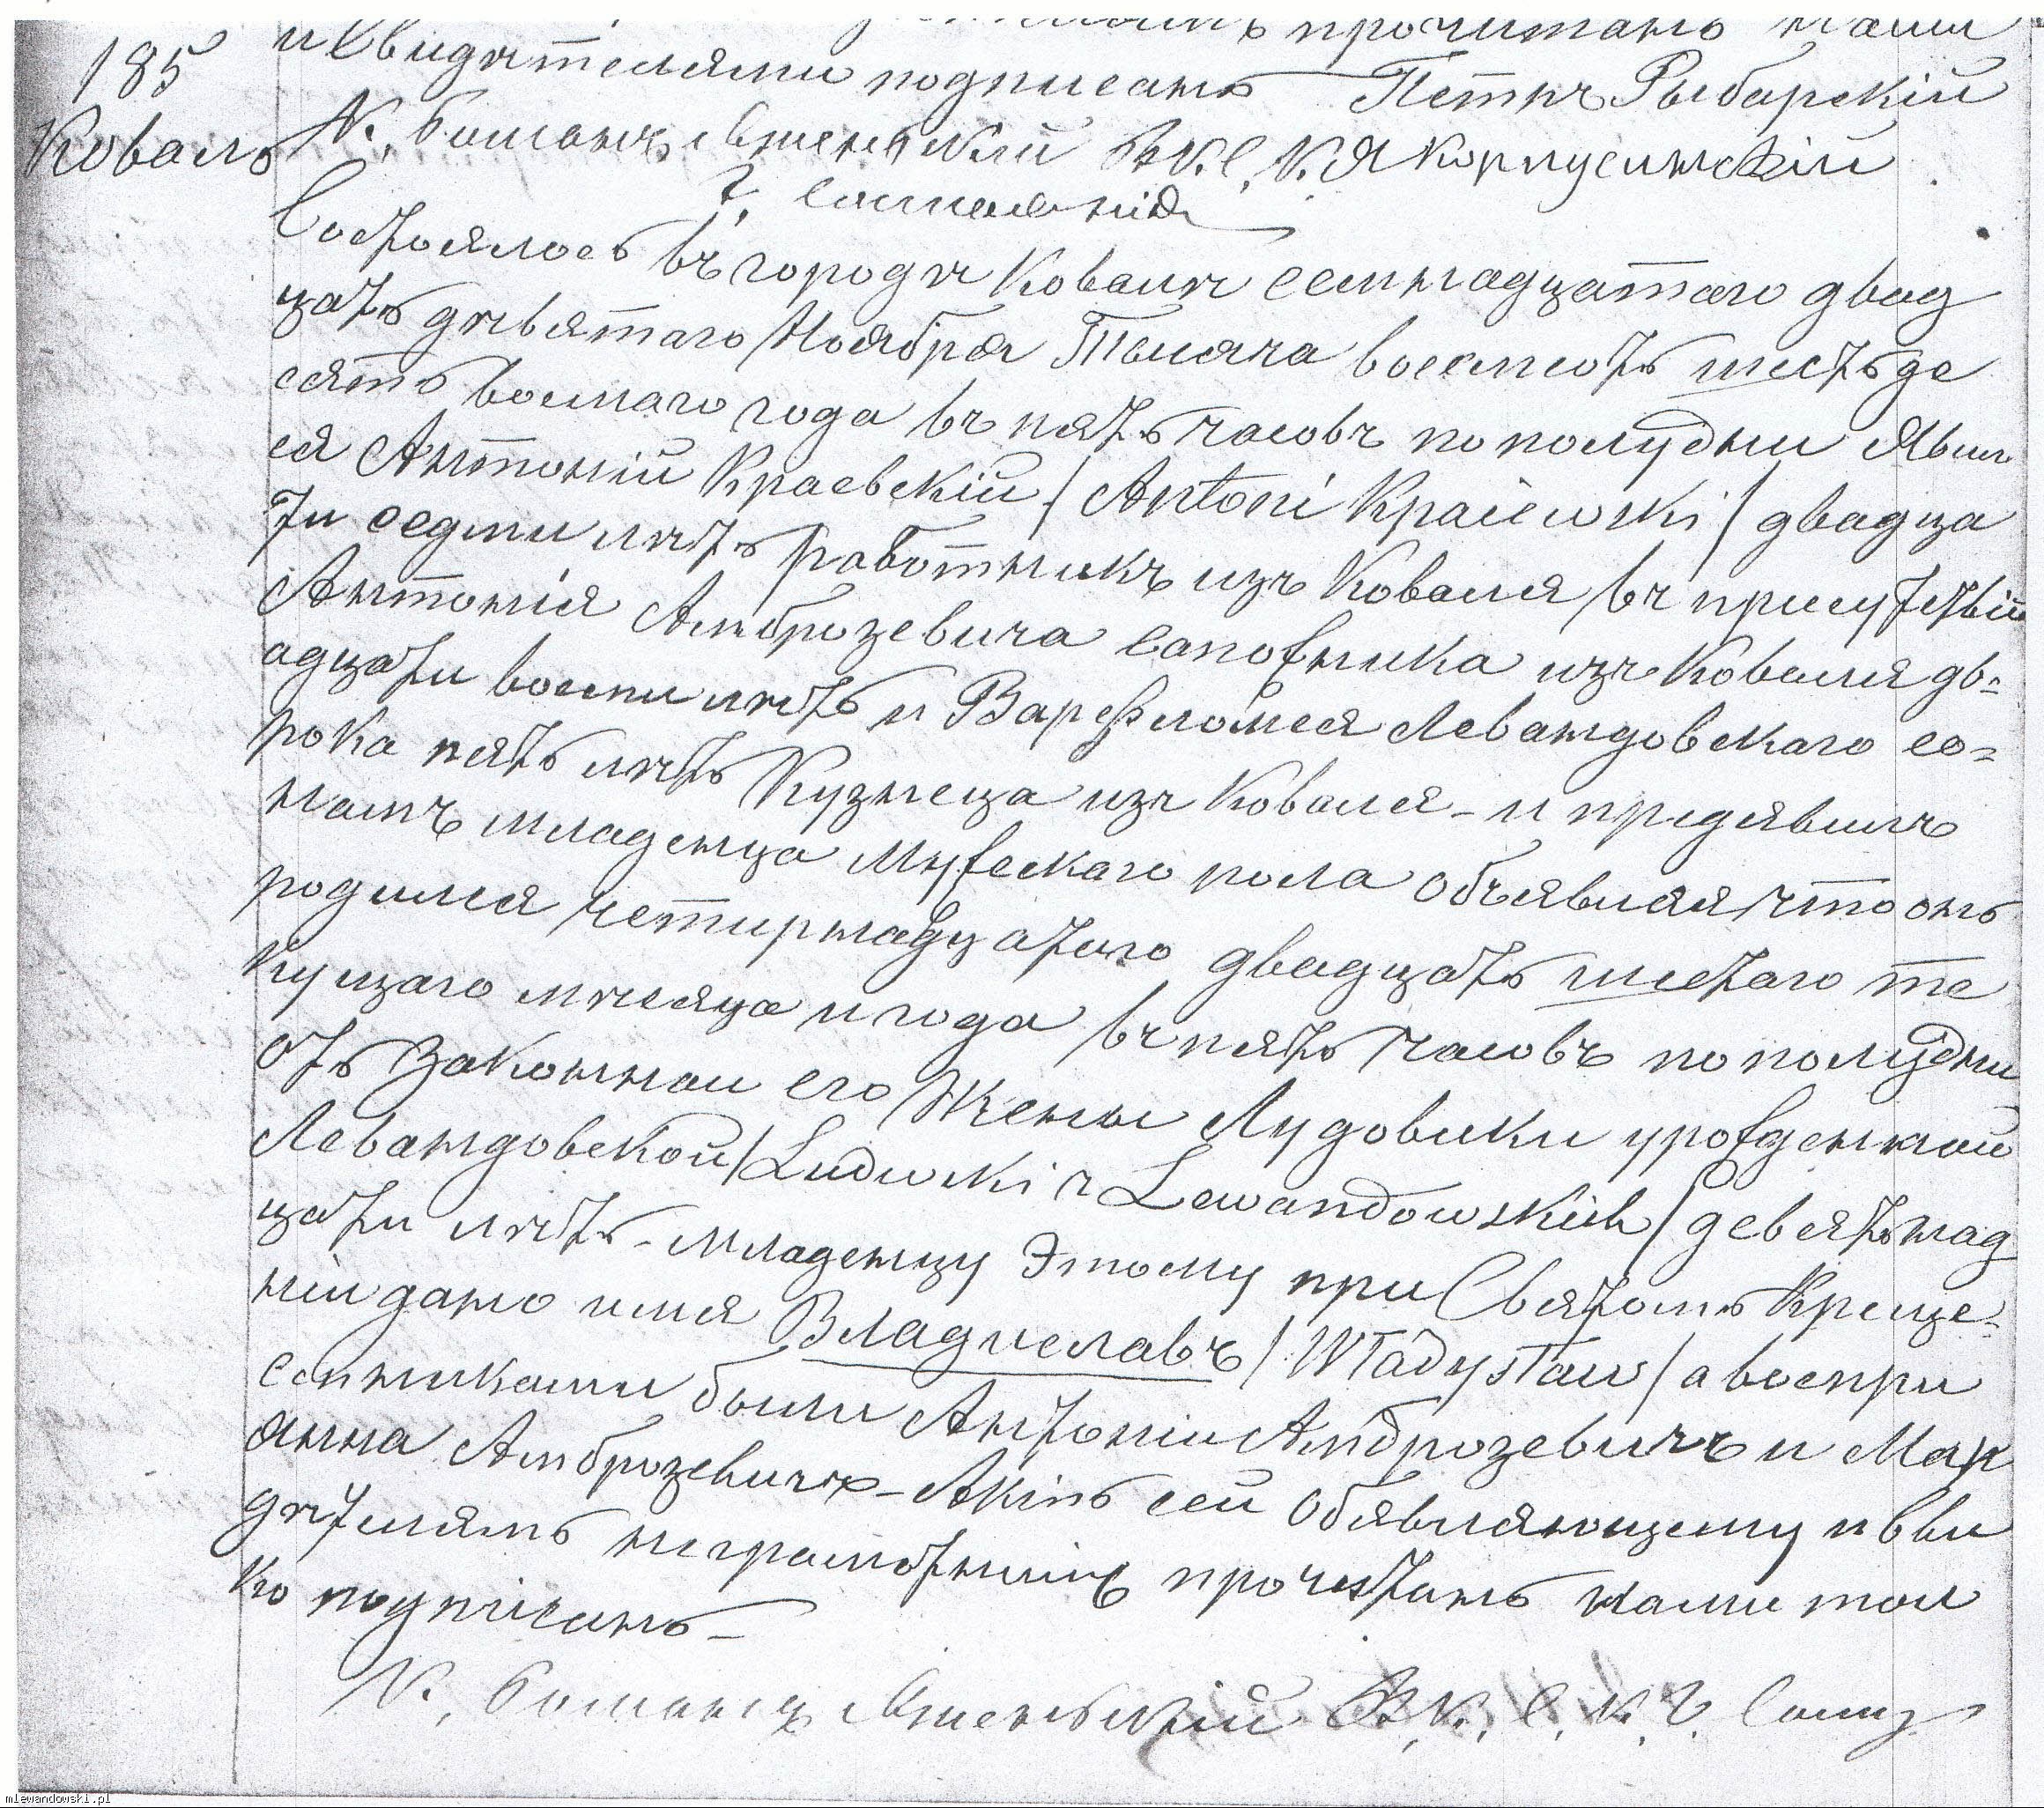 185
Коваль
прочитанъ нами
и свидѣтелями подписанъ Петръ Рыбарскій
К. Романъ В. К. С. К. Я Корпусинскій
Ч. Состоянія
Состоялось въ городѣ Ковалѣ семнадцатаго двад
цать дѣвятаго Ноября Тысяча восемсотъ шестьде
сятъ восмаго года въ пять часовъ по полудни Явил
ся Антоній Краевскій / Antoni Krajewski / двадца
ти седми лѣтъ работникъ изъ Коваля въ присутствіи
Антонія Амброзевича сапожника изъ Коваля дв=
адцати восми лѣтъ и Варфломея Левандовскаго со=
рока пять лѣтъ Кузнеца изъ Коваля - и предявилъ
намъ младенца мужескаго пола объявляя что онъ
родился четирнадцатаго двадцать шестаго те
кущаго мѣсяца и года въ пять часовъ по полудни
отъ законнаи его Жены Лудовики урожденной
Левандовской / Ludwki z Lewandowskich / девятьнад
цати лѣтъ - младенцу Этому при Святомъ Креще=
ніи дано имя Владиславъ / Władysław / а воспри
емниками были Антоніи Амброзевичъ и Мар
янна Амброзевичъ - Актъ сей Объявляющему и сви
дѣтелямъ неграмотнымъ прочитанъ Нами тол
ко подписанъ -
К. Романъ В. К. С. К. Ч. Сост
mlewandowski.pl